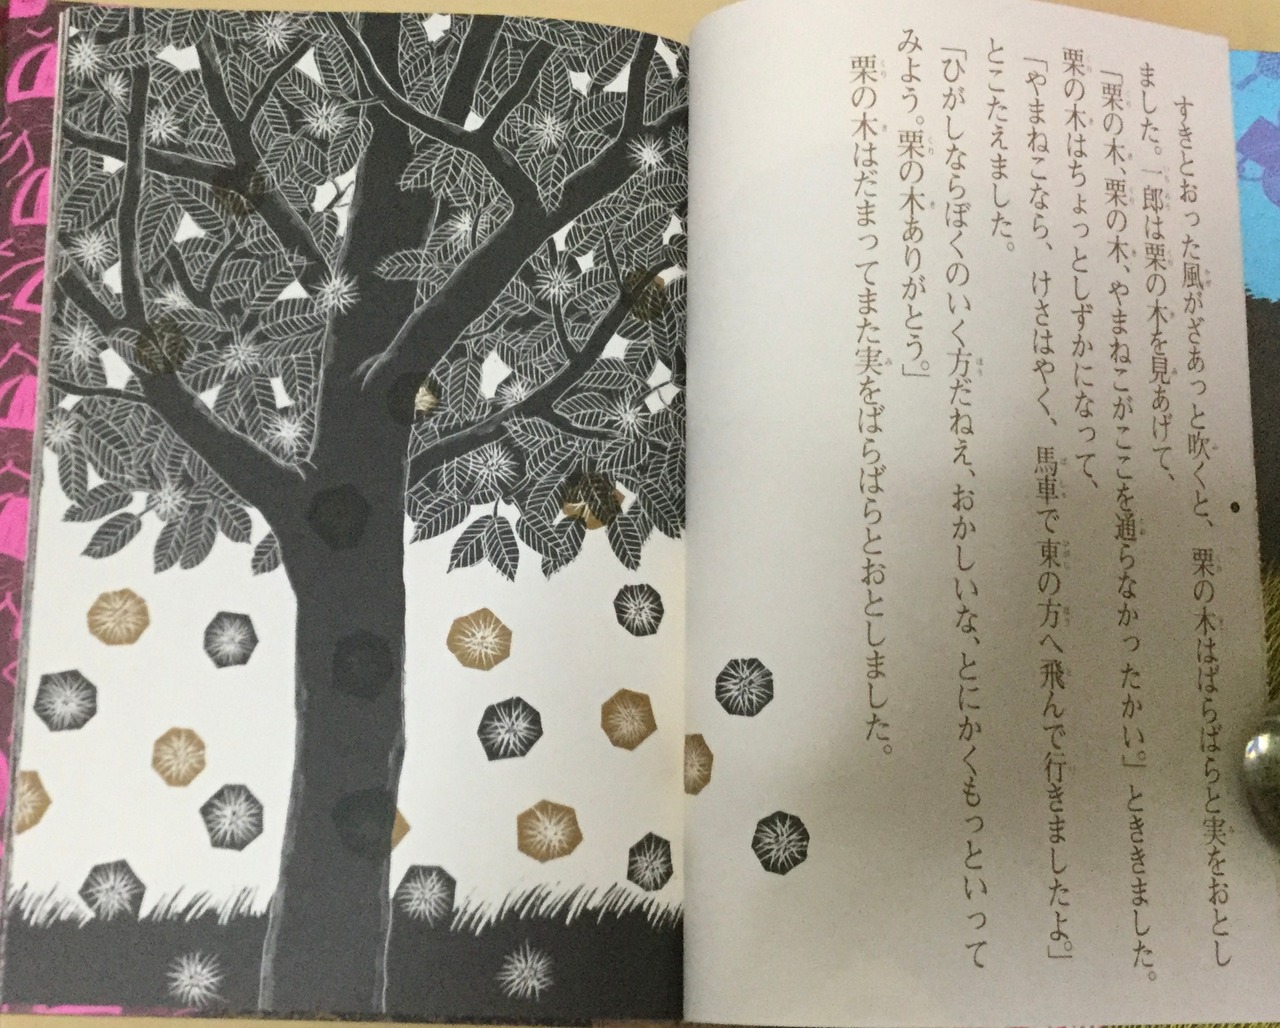 すきとおった風がざあっと吹くと、栗の木はばらばらと実をおとし
ました。一郎は栗の木を見あげて、
「栗の木、栗の木、やまねこがここを通らなかったかい。」とききました。
栗の木はちょっとしずかになって、
「やまねこなら、けさはやく、馬車で東の方へ飛んで行きましたよ。」
とこたえました。
「ひがしならぼくのいく方だねえ、おかしいな、とにかくもっといって
みよう。栗の木ありがとう。」
栗の木はだまってまた実をばらばらとおとしました。